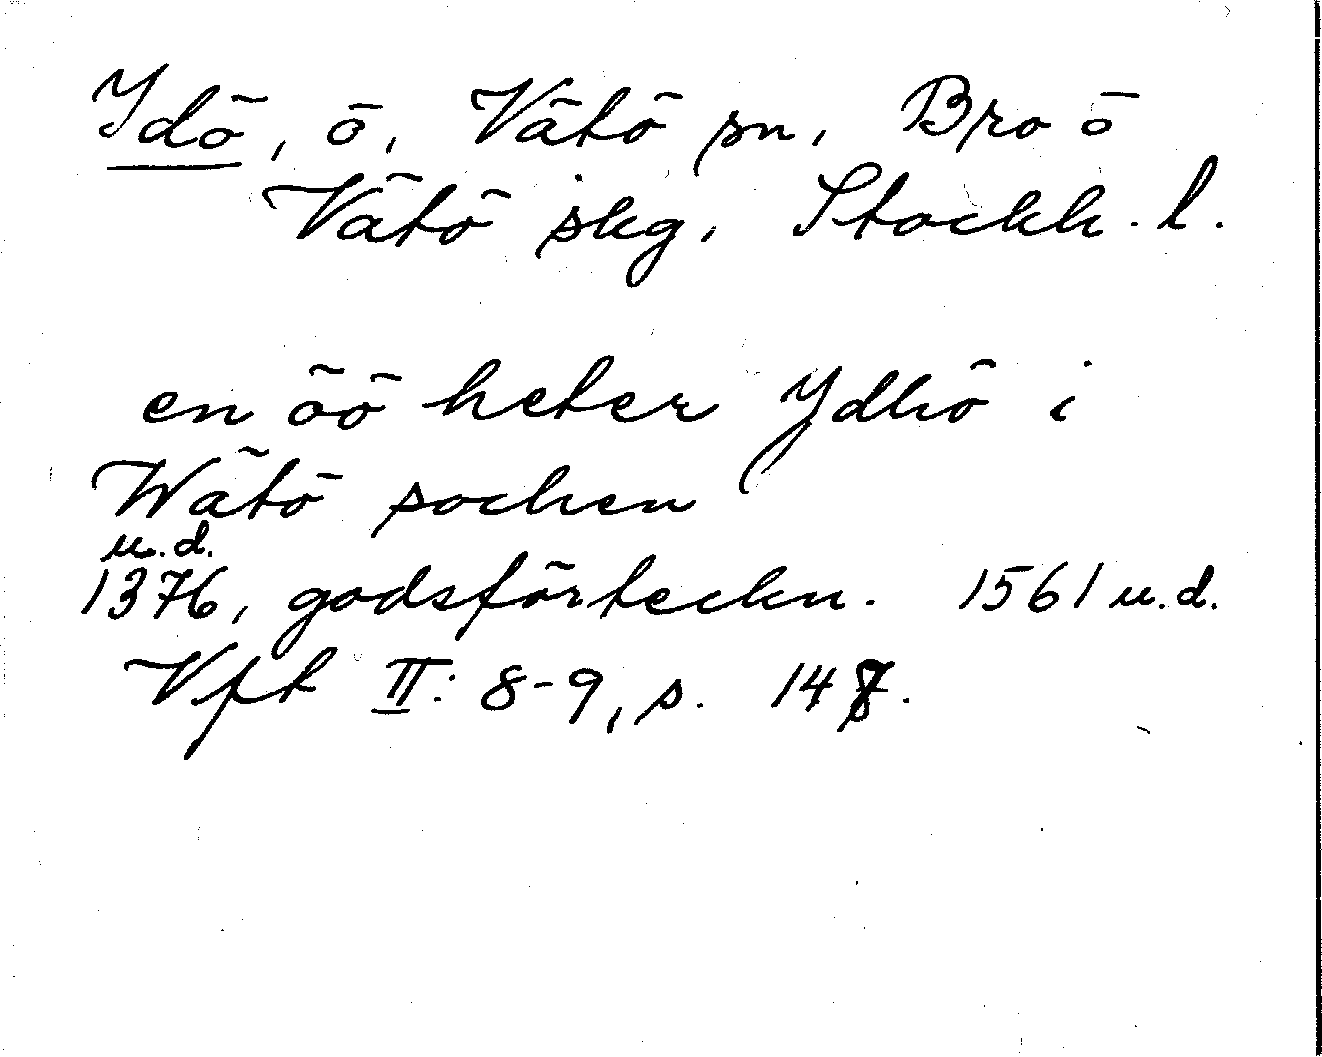 Idö, ö, Vätö sn, Bro o
Vätö skg, Stockh. l.
en öö heter Ydhö i
Wätö sochen
u.d.
1376, godsförteckn. 1561 u.d.
Vft II: 8-9, s. 148.